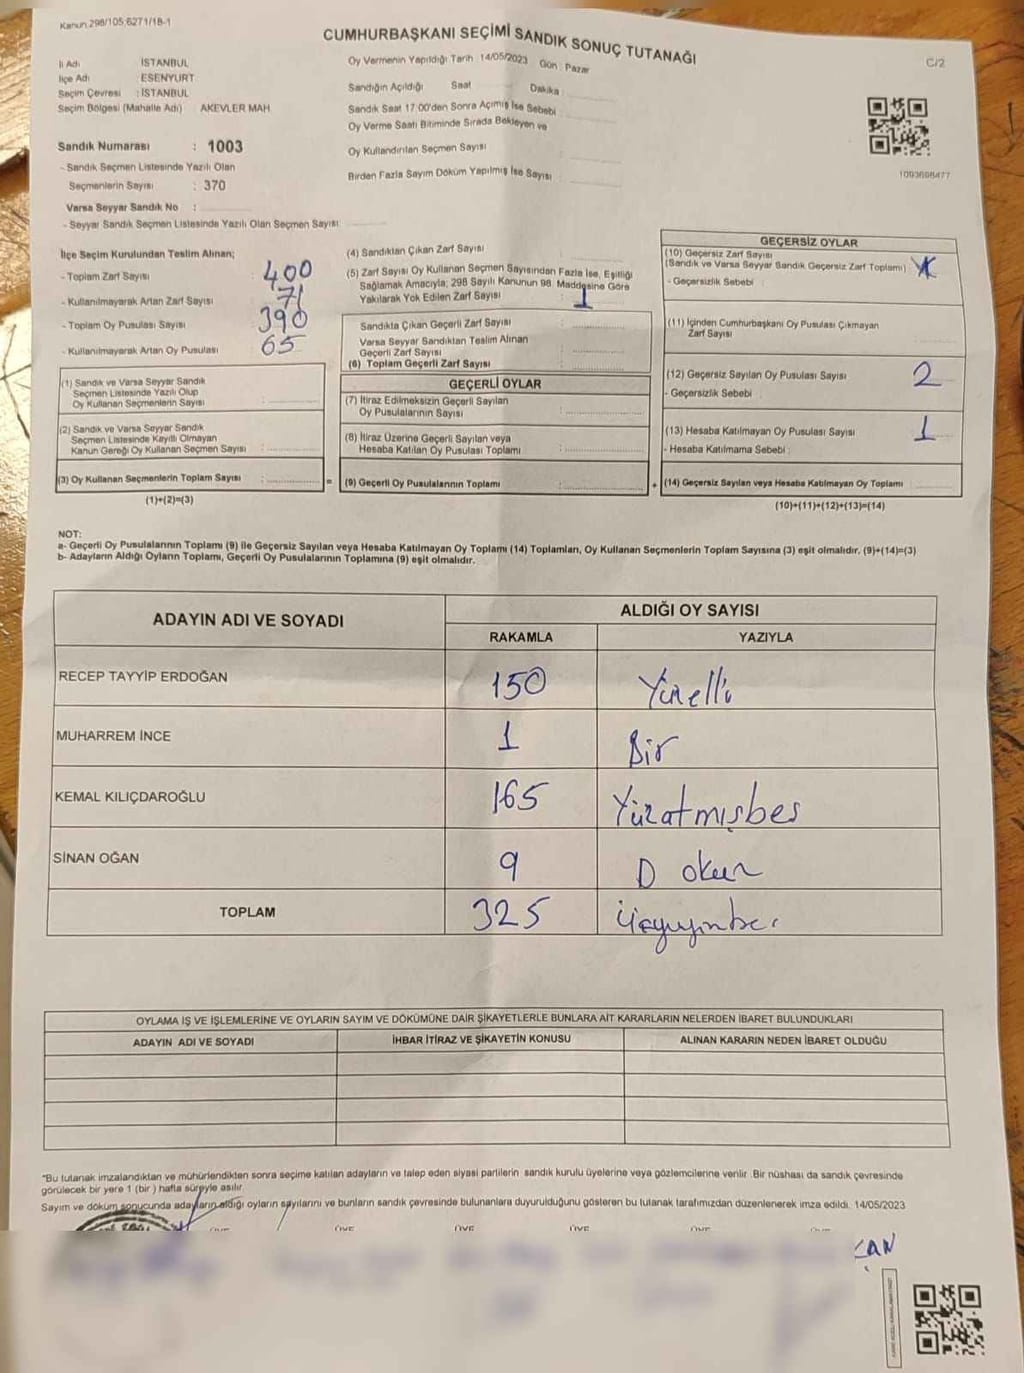 Kanun 298/105,6271/18-1
CUMHURBAŞKANI SEÇİMİ SANDIK SONUÇ TUTANAĞI
C/2
İl Adı İSTANBUL
İlçe Adı ESENYURT
Seçim Çevresi : İSTANBUL
Seçim Bölgesi (Mahalle Adı) AKEVLER MAH
Sandık Numarası : 1003
- Sandık Seçmen Listesinde Yazılı Olan
Seçmenlerin Sayısı : 370
Varsa Seyyar Sandık No :
- Seyyar Sandık Seçmen Listesinde Yazılı Olan Seçmen Sayısı
Oy Vermenin Yapıldığı Tarih 14/05/2023 Gün : Pazar
Sandığın Açıldığı Saat Dakika
Sandık Saat 17:00'den Sonra Açılmış İse Sebebi
Oy Verme Saati Bitiminde Sırada Bekleyen ve
Oy Kullandırılan Seçmen Sayısı
Birden Fazla Sayım Döküm Yapılmış İse Sayısı
1093698477
İlçe Seçim Kurulundan Teslim Alınan;
- Toplam Zarf Sayısı 400
- Kullanılmayarak Artan Zarf Sayısı 71
- Toplam Oy Pusulası Sayısı 390
- Kullanılmayarak Artan Oy Pusulası 65
(1) Sandık ve Varsa Seyyar Sandık
Seçmen Listesinde Yazılı Olup
Oy Kullanan Seçmenlerin Sayısı :
(2) Sandık ve Varsa Seyyar Sandık
Seçmen Listesinde Kayıtlı Olmayan
Kanun Gereği Oy Kullanan Seçmen Sayısı :
(3) Oy Kullanan Seçmenlerin Toplam Sayısı :
=
(1)+(2)=(3)
(4) Sandıktan Çıkan Zarf Sayısı
(5) Zarf Sayısı Oy Kullanan Seçmen Sayısından Fazla İse, Eşitliği
Sağlamak Amacıyla; 298 Sayılı Kanunun 98. Maddesine Göre
Yakılarak Yok Edilen Zarf Sayısı : 1
Sandıkta Çıkan Geçerli Zarf Sayısı :
Varsa Seyyar Sandıktan Teslim Alınan
Geçerli Zarf Sayısı :
(6) Toplam Geçerli Zarf Sayısı :
GEÇERLİ OYLAR
(7) İtiraz Edilmeksizin Geçerli Sayılan
Oy Pusulalarının Sayısı :
(8) İtiraz Üzerine Geçerli Sayılan veya
Hesaba Katılan Oy Pusulası Toplamı :
(9) Geçerli Oy Pusulalarının Toplamı :
+
GEÇERSİZ OYLAR
(10) Geçersiz Zarf Sayısı
(Sandık ve Varsa Seyyar Sandık Geçersiz Zarf Toplamı)
- Geçersizlik Sebebi :
(11) İçinden Cumhurbaşkanı Oy Pusulası Çıkmayan
Zarf Sayısı
(12) Geçersiz Sayılan Oy Pusulası Sayısı 2
- Geçersizlik Sebebi
(13) Hesaba Katılmayan Oy Pusulası Sayısı 1
- Hesaba Katılmama Sebebi :
(14) Geçersiz Sayılan veya Hesaba Katılmayan Oy Toplamı
(10)+(11)+(12)+(13)=(14)
NOT:
a- Geçerli Oy Pusulalarının Toplamı (9) ile Geçersiz Sayılan veya Hesaba Katılmayan Oy Toplamı (14) Toplamları, Oy Kullanan Seçmenlerin Toplam Sayısına (3) eşit olmalıdır. (9)+(14)=(3)
b- Adayların Aldığı Oyların Toplamı, Geçerli Oy Pusulalarının Toplamına (9) eşit olmalıdır.
ADAYIN ADI VE SOYADI
ALDIĞI OY SAYISI
RAKAMLA YAZIYLA
RECEP TAYYİP ERDOĞAN 150 Yüzelli
MUHARREM İNCE 1 Bir
KEMAL KILIÇDAROĞLU 165 Yüzatmışbes
SİNAN OĞAN 9 Dokuz
TOPLAM 325
OYLAMA İŞ VE İŞLEMLERİNE VE OYLARIN SAYIM VE DÖKÜMÜNE DAİR ŞİKAYETLERLE BUNLARA AİT KARARLARIN NELERDEN İBARET BULUNDUKLARI
ADAYIN ADI VE SOYADI İHBAR İTİRAZ VE ŞİKAYETİN KONUSU ALINAN KARARIN NEDEN İBARET OLDUĞU
"Bu tutanak imzalandıktan ve mühürlendikten sonra seçime katılan adayların ve talep eden siyasi partilerin sandık kurulu üyelerine veya gözlemcilerine verilir. Bir nüshası da sandık çevresinde
görülecek bir yere 1 (bir) hafta süreyle asılır.
Sayım ve döküm sonucunda adayların aldığı oyların sayılarını ve bunların sandık çevresinde bulunanlara duyurulduğunu gösteren bu tutanak tarafımızdan düzenlenerek imza edildi. 14/05/2023